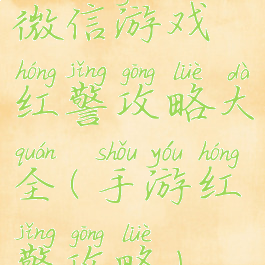 微信游戏
hóng jǐng gōng lüè dà
红警攻略大
quán shǒu yóu hóng
全(手游红
jǐng gōng lüè
警攻略)